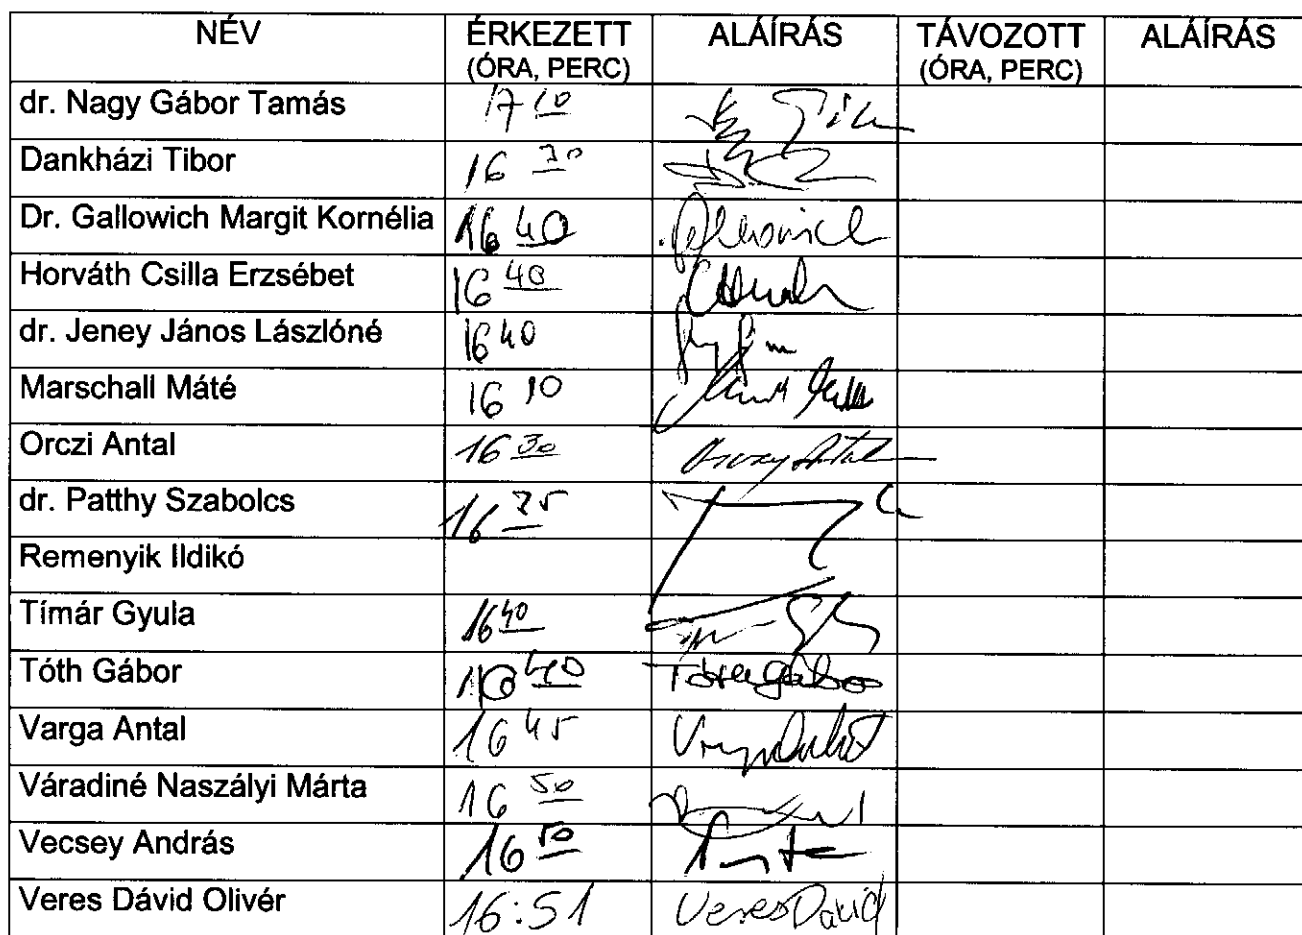 NÉV ÉRKEZETT ALÁÍRÁS TÁVOZOTT ALÁÍRÁS
(ÓRA, PERC) (ÓRA, PERC)
dr. Nagy Gábor Tamás 17 10
Dankházi Tibor 16
Dr. Gallowich Margit Kornélia 16 40
Horváth Csilla Erzsébet 16 40
dr. Jeney János Lászlóné 16 40
Marschall Máté 16 10
Orczi Antal 16 30
dr. Patthy Szabolcs 16
Remenyik Ildikó
Tímár Gyula 16 40
Tóth Gábor 16 40 Tóth Gábor
Varga Antal 16 45
Váradiné Naszályi Márta 16 50
Vecsey András 16 50
Veres Dávid Olivér 16:51 Veres Dávid